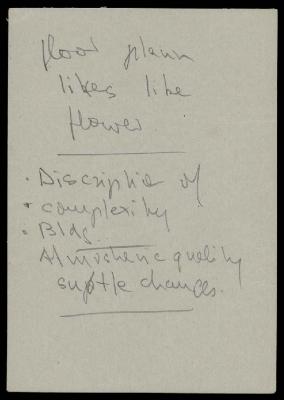 floor plann
likes like
flower.
· Discriptio of
· complexity
· Bldg.
Atmospheric quality
suptle changes.